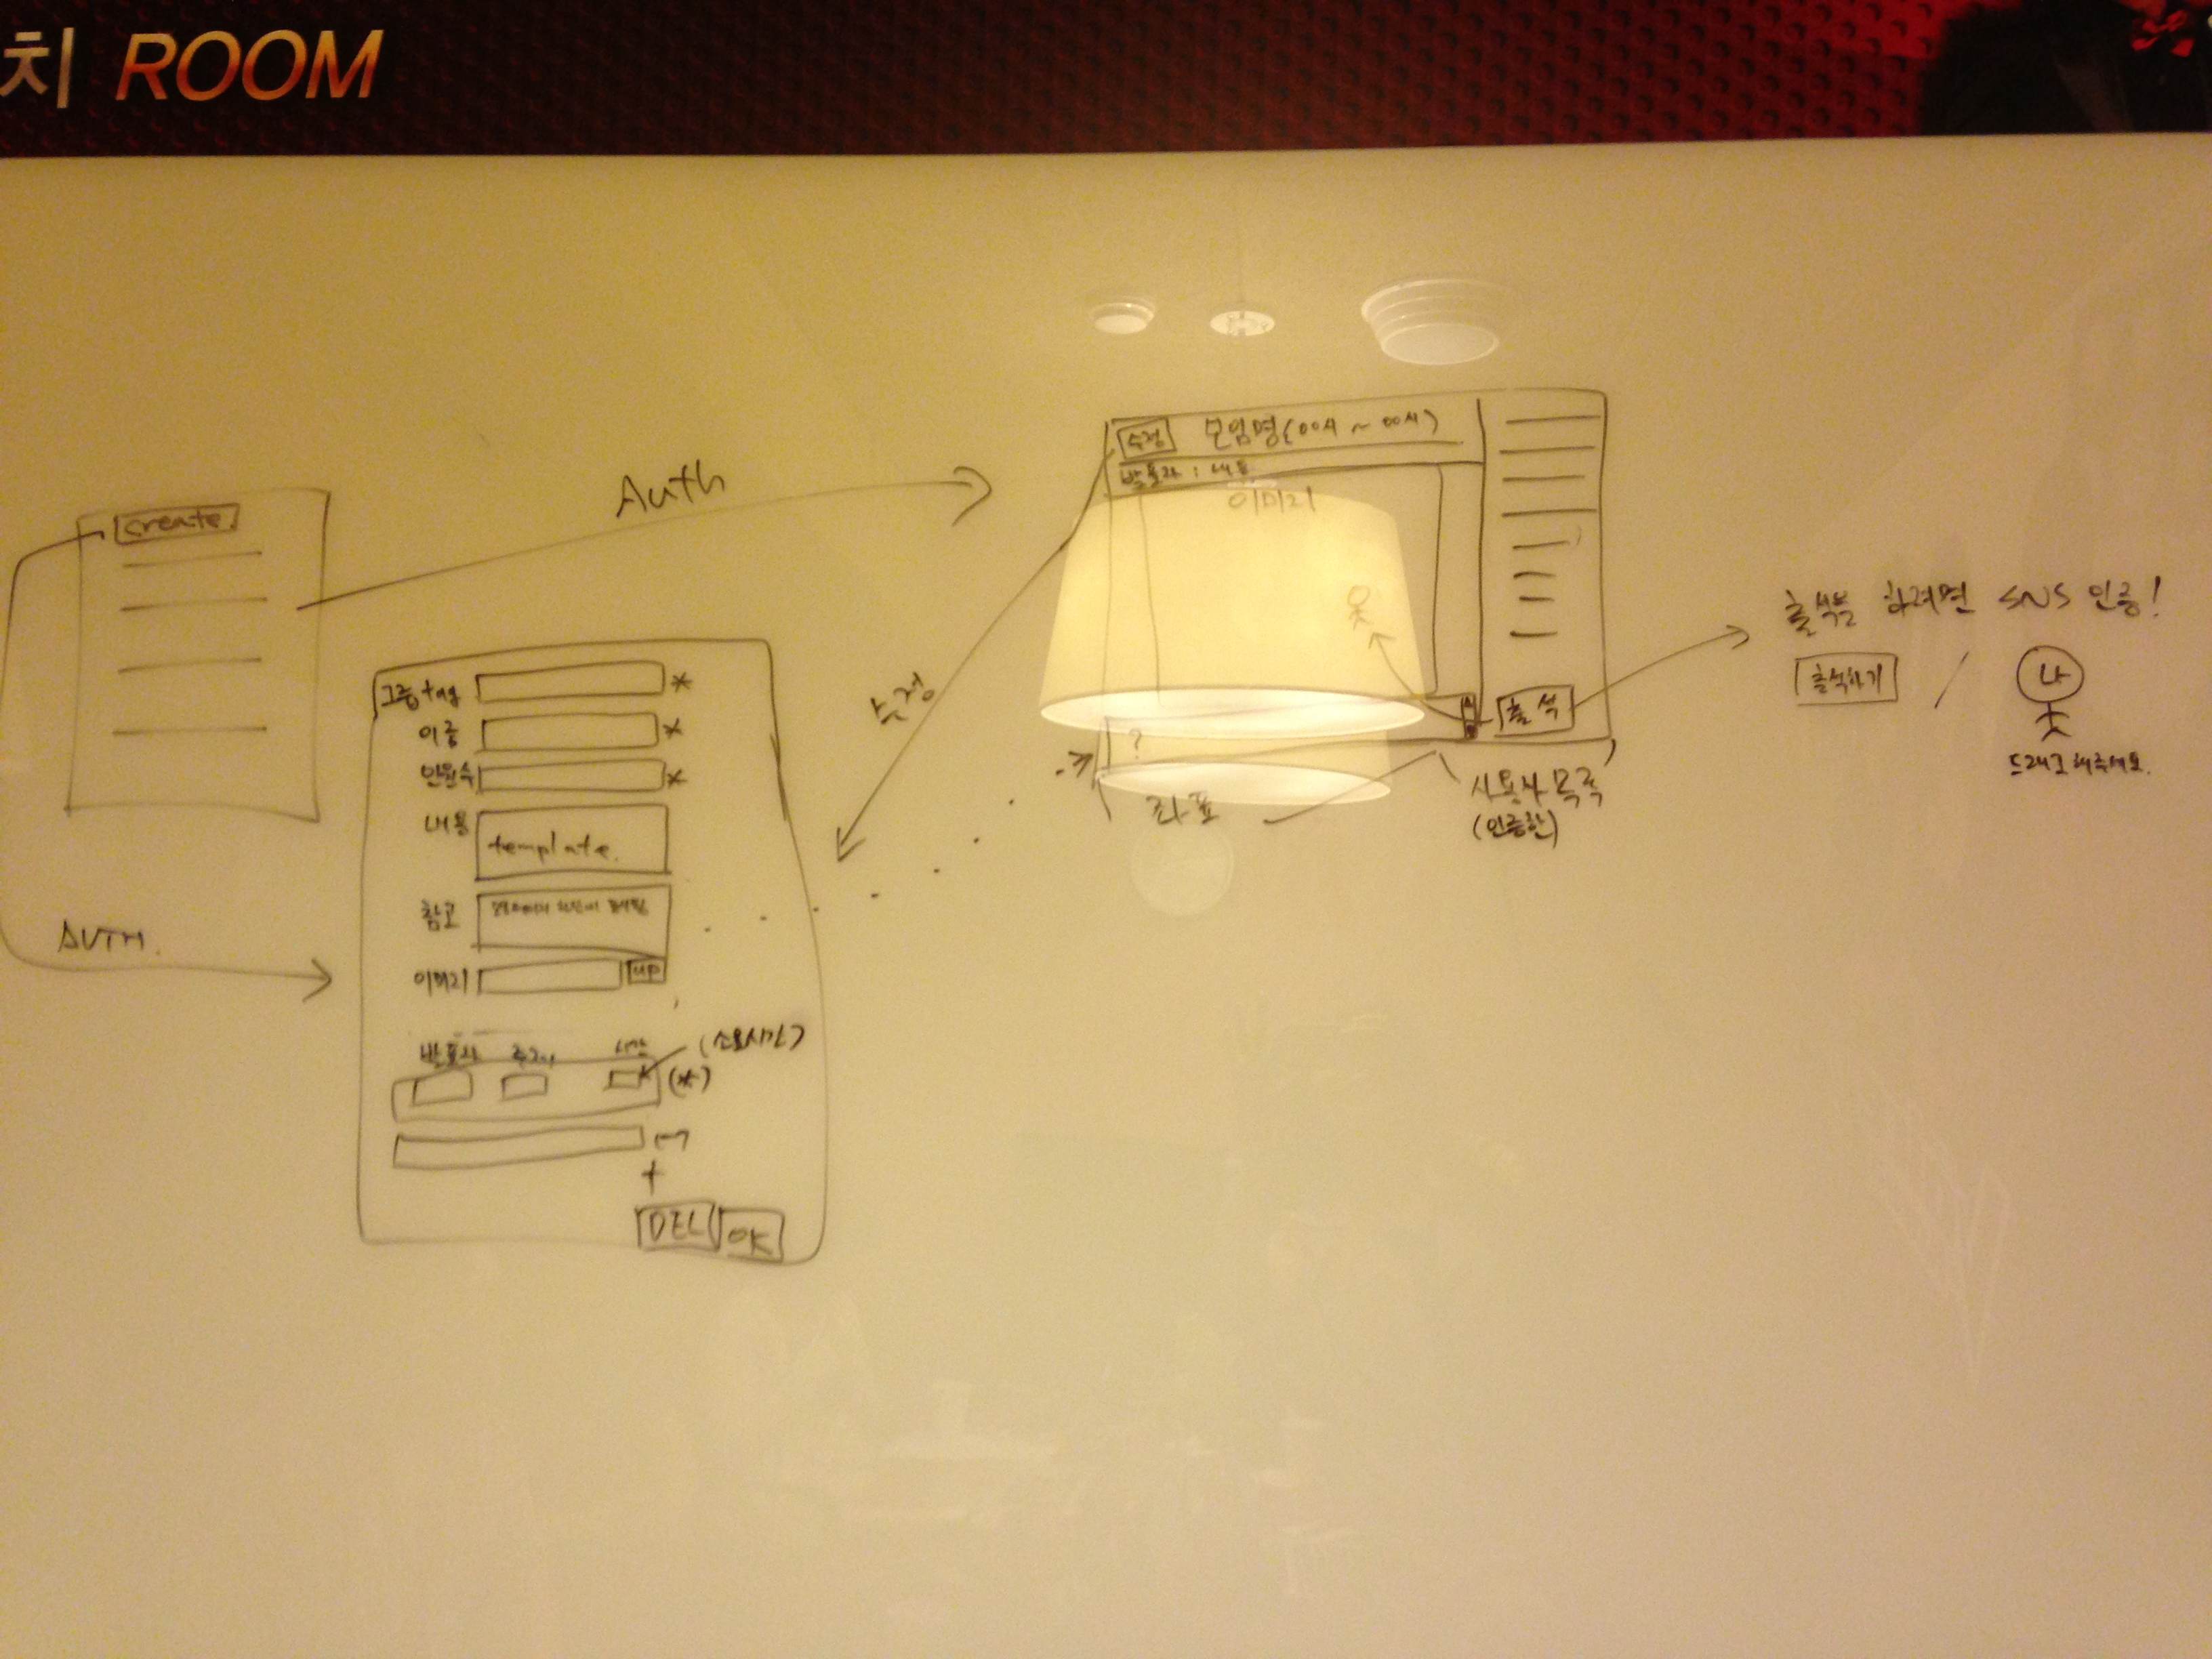 치 ROOM
create
Auth
AUTH.
그룹 tag *
이름 *
인원수 *
내용
template.
참고
이미지 up
발표자 주제 시간 (소요시간)
(*)
+
DEL OK
수정
수정 모임명(00시 ~ 00시)
발표자 : 내용
이미지
?
출석
좌표
사용자 목록
(인증한)
출석부 하려면 SNS 인증!
출석하기 / 나
드래그 해주세요.